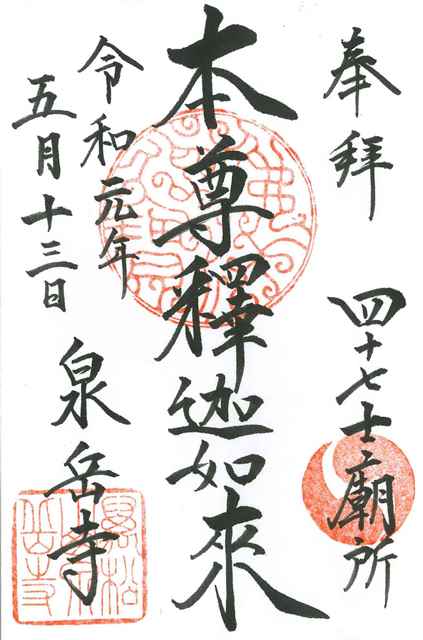 奉拜
四十七士廟所
本尊釋迦如來
令和元年
五月十三日
泉岳寺